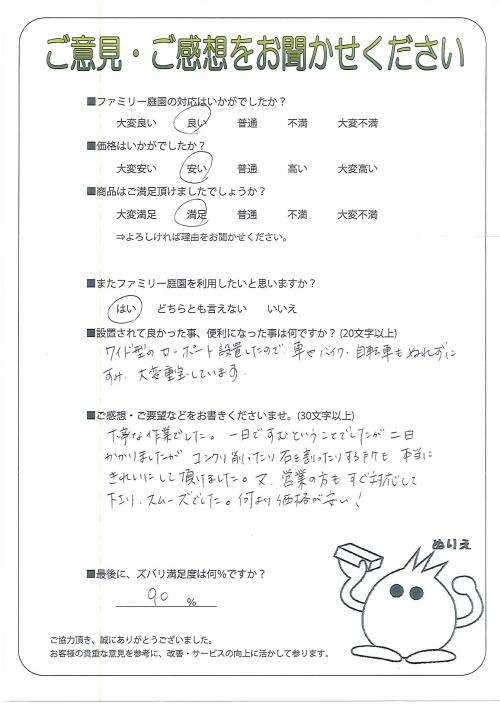 ご意見・ご感想をお聞かせください
■ファミリー庭園の対応はいかがでしたか？
大変良い 良い 普通 不満 大変不満
■価格はいかがでしたか？
大変安い 安い 普通 高い 大変高い
■商品はご満足頂けましたでしょうか？
大変満足 満足 普通 不満 大変不満
⇒よろしければ理由をお聞かせください。
■またファミリー庭園を利用したいと思いますか？
はい どちらとも言えない いいえ
■設置されて良かった事、便利になった事は何ですか？(20文字以上)
ワイド型のカーポート設置したので、車やバイク、自転車もぬれずに
すみ、大変重宝しています。
■ご感想・ご要望などをお書きくださいませ。(30文字以上)
丁寧な作業でした。一日ですむということでしたが二日
かかりましたが コンクリ削ったり石を割ったりする所も 本当に
きれいにして頂けました。又、営業の方も すぐ対応して
下さり、スムーズでした。何より価格が安い！
ぬりえ
■最後に、ズバリ満足度は何%ですか？
90 %
ご協力頂き、誠にありがとうございました。
お客様の貴重な意見を参考に、改善・サービスの向上に活かして参ります。